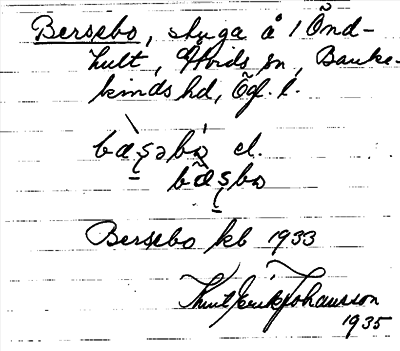 Bersebo, stuga å 1 Önd-
hult, Åtvids sn, Banke-
kinds hd, Ögl. l.
bæ̀ʂəbó el.
bæ̃ʂbo
Bersebo kb 1933
Knut Erik Johansson
1935